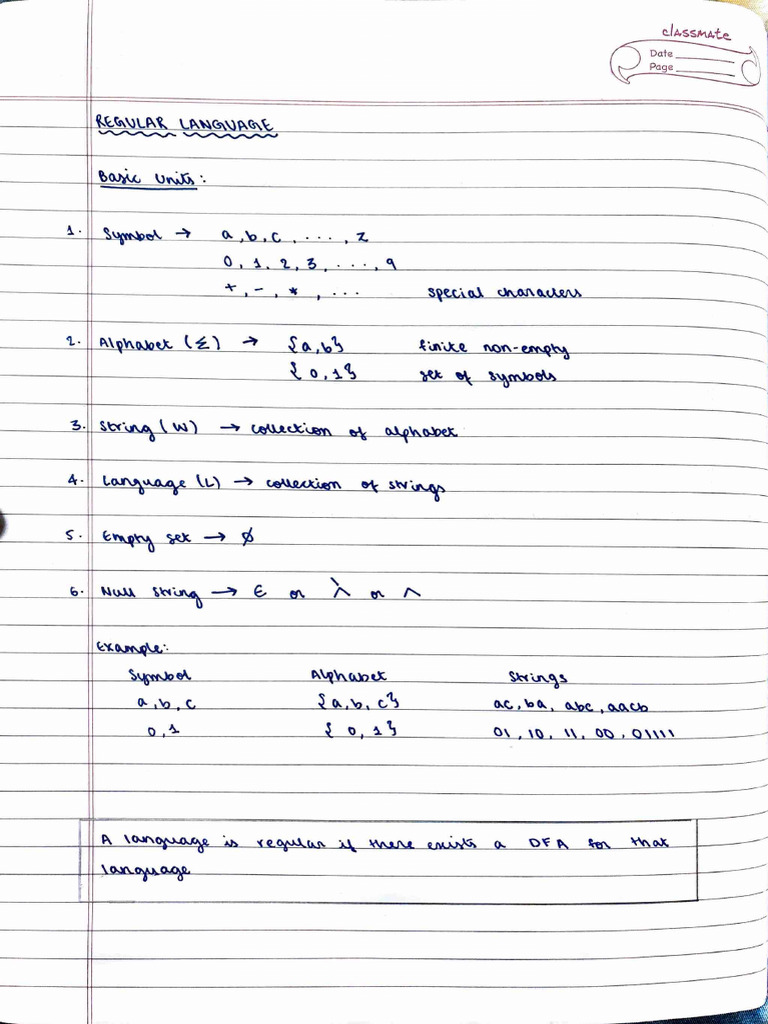 classmate
Date
Page
REGULAR LANGUAGE
Basic Units:
1. Symbol → a, b, c, ..., z
0, 1, 2, 3, ..., 9
+, -, *, ... special characters
2. Alphabet (Σ) → {a, b} finite non-empty
{0, 1} set of symbols
3. String (W) → collection of alphabet
4. Language (L) → collection of strings
5. Empty set → ϕ
6. Null string → ϵ or λ or ^
Example:
Symbol Alphabet Strings
a, b, c {a, b, c} ac, ba, abc, aacb
0, 1 {0, 1} 01, 10, 11, 00, 01111
A language is regular if there exists a DFA for that
language